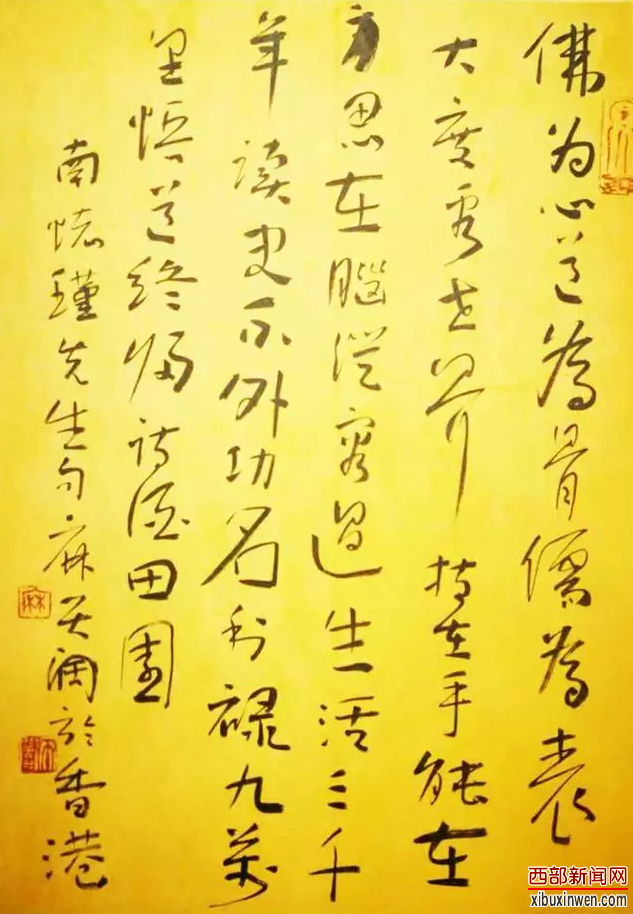 佛为心道為骨儒為表
大度看世界技在手能在
身思在腦從容過生活三千
年读史不外功名利禄九萬
里悟道终归诗酒田園
南懷瑾先生句麻天阔於香港
西部新闻网
xibuxinwen.com